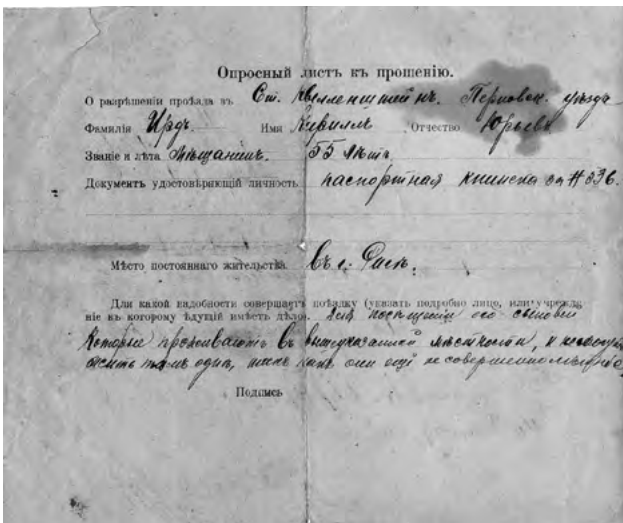 Опросный листъ къ прошенію.
О разрѣшеніи проѣзда въ Ст. Квелленштейнъ. Перновск. уѣзда
Фамилія Ирдъ. Имя Кириллъ Отчество Юрьевъ
Званіе и лѣта Мѣщанинъ. 55 лѣтъ
Документъ удостовѣряющій личность паспортная книжка за № 336.
Мѣсто постояннаго жительства въ г.
Для какой надобности совершаетъ поѣздку (указать подробно лицо, или учрежд
ніе къ которому ѣдущій имѣетъ дѣло). Для посѣщенія его сыновей
Которые проживаютъ въ вышеуказанной мѣстности, и
жить тамъ одни, такъ какъ они ещё не совершеннолѣтніе
Подпись